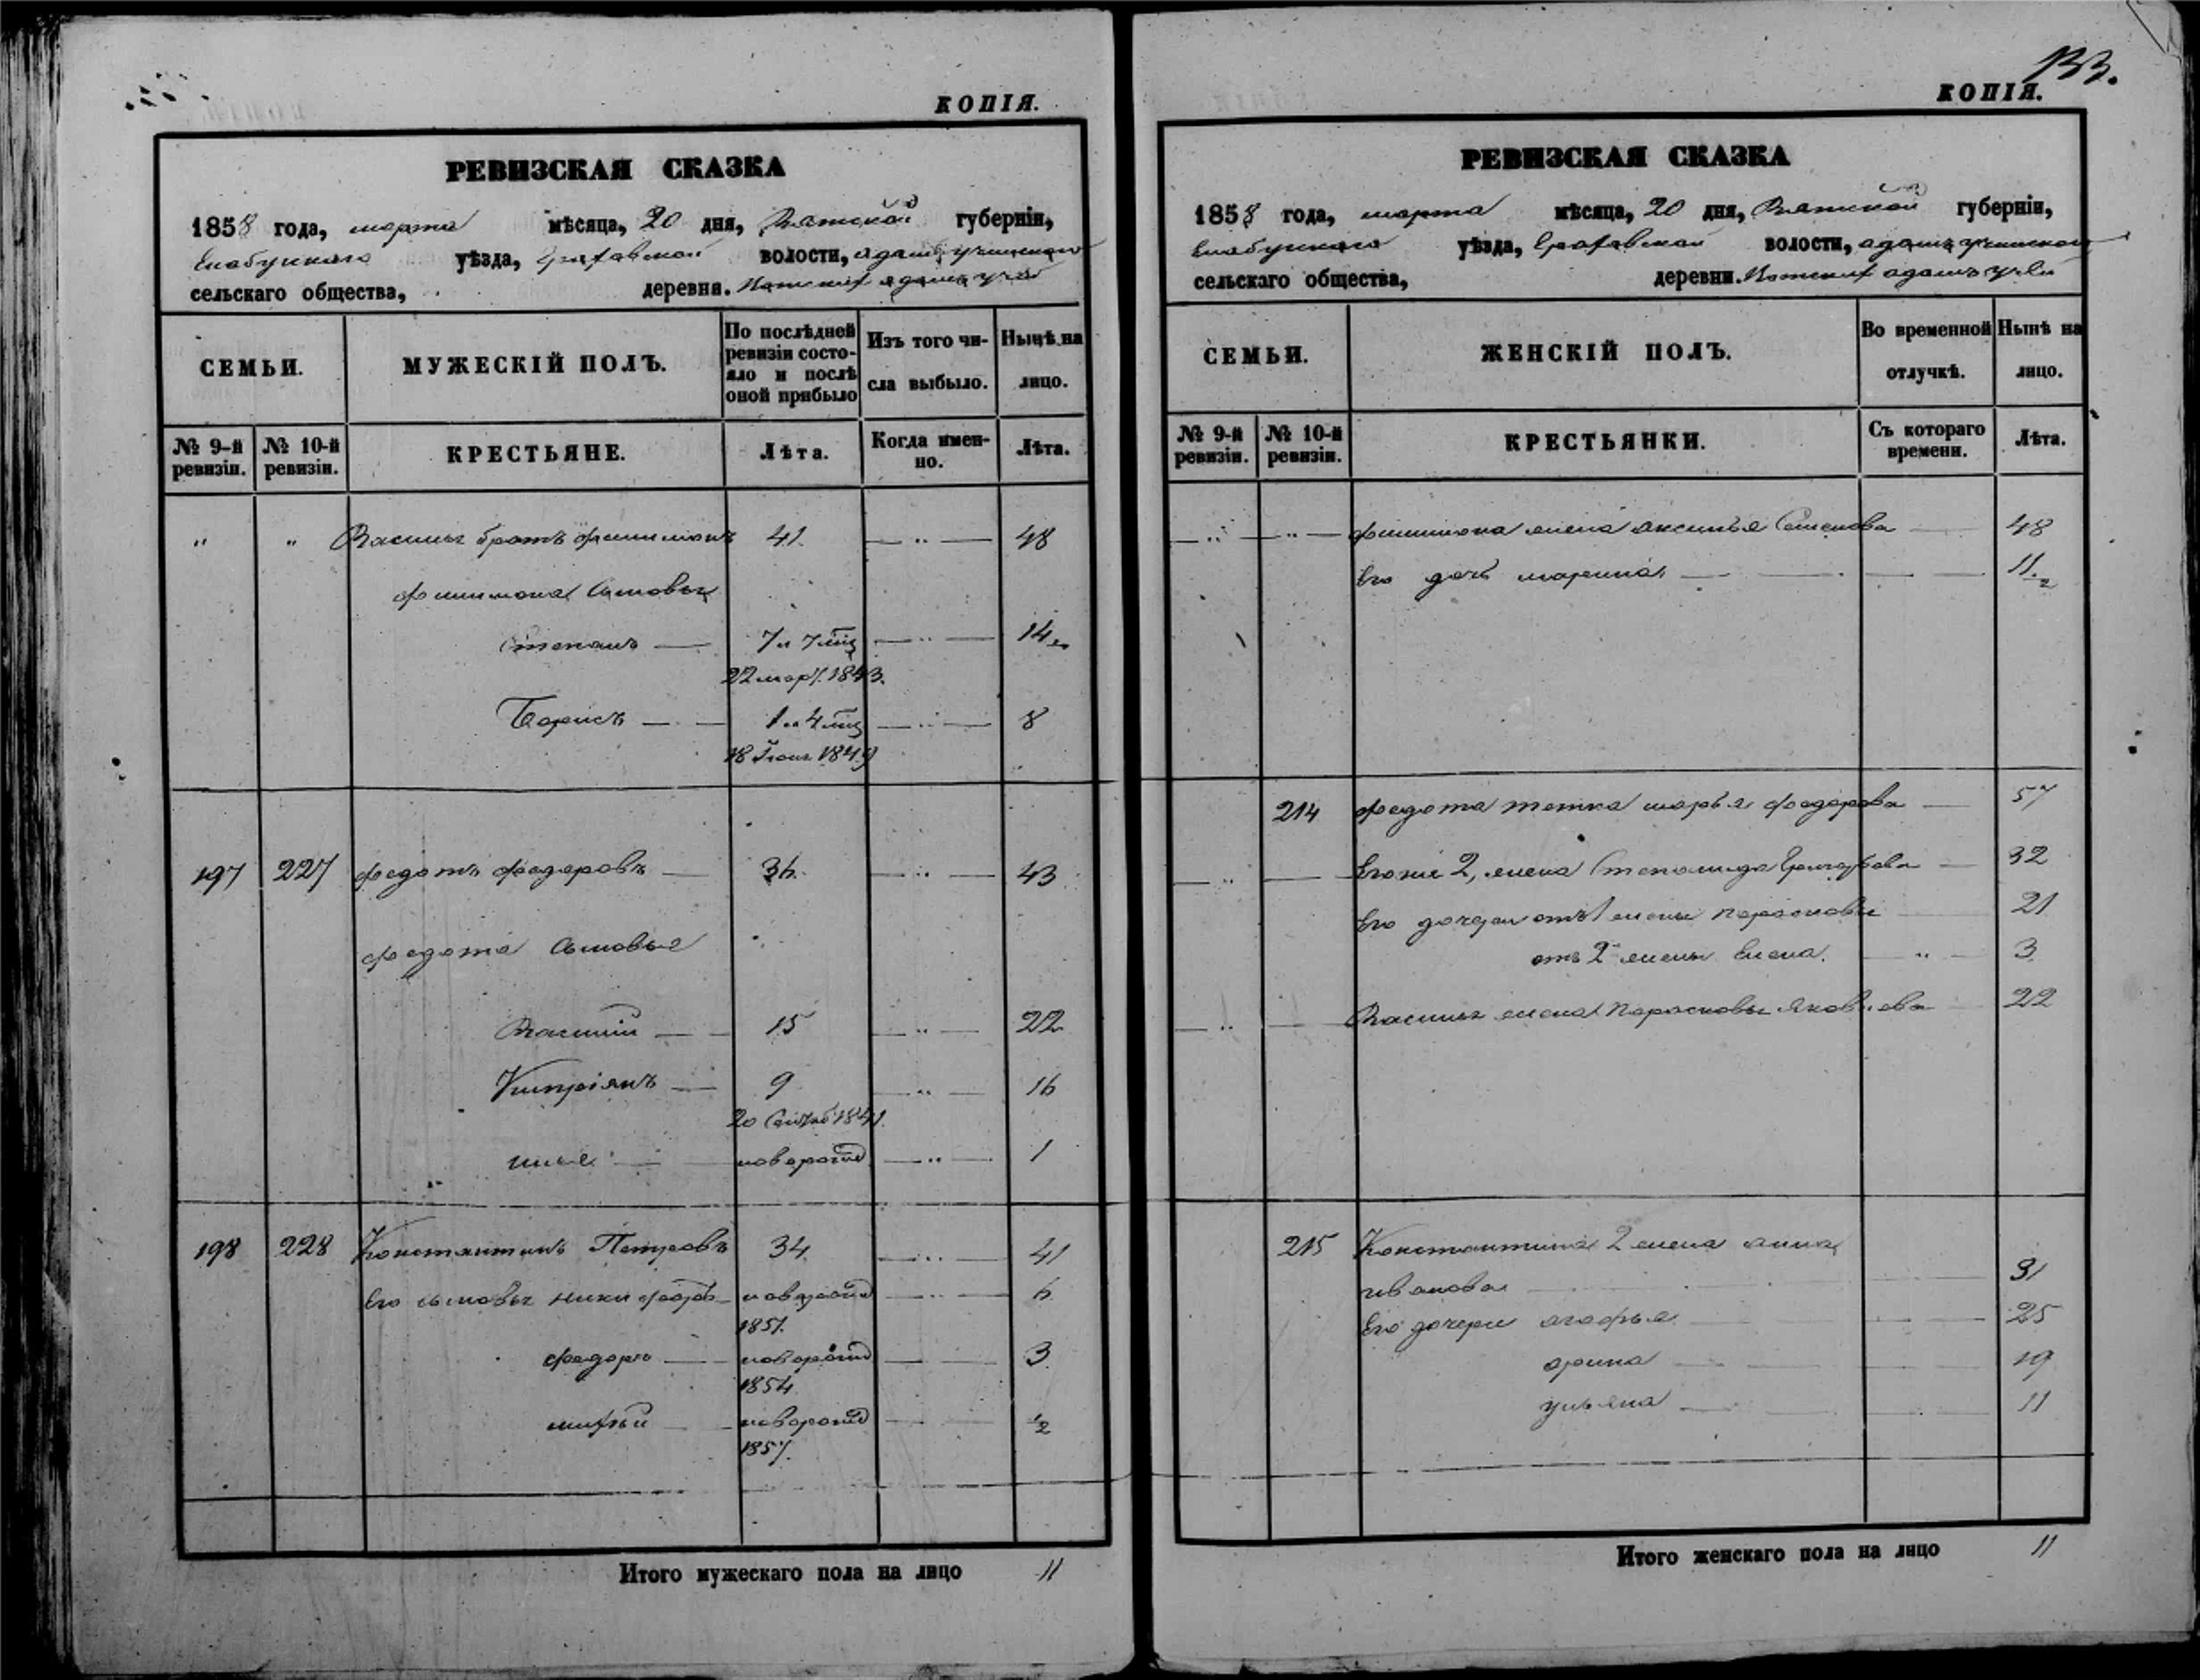 КОПІЯ.
РЕВИЗСКАЯ СКАЗКА
1858 года, марта мѣсяца, 20 дня, Вятской губерніи,
Елабужскаго уѣзда, Граховской волости,
сельскаго общества, деревня.
СЕМЬИ.
МУЖЕСКІЙ ПОЛЪ.
По послѣдней ревизіи состо-
яло и послѣ оной прибыло
Изъ того чи-
сла выбыло.
Нынѣ на лицо.
№ 9-й ревизіи.
№ 10-й ревизіи.
КРЕСТЬЯНЕ.
Лѣта.
Когда имен-
но.
Лѣта.
" " Василья братъ Филимонъ 41. — " — 48
Филимона сыновья
Степанъ — 7 — " — 14
22 мар. 1843.
Борисъ — — 1 — " — 8
18 1849
197 227 Федотъ Федоровъ — 36. — " — 43
Федота сыновья
Василій — 15 — " — 22
Кипріянъ — 9 — " — 16
20 1841.
Илья — новорожд — " — 1
198 228 Константинъ Петровъ 34. — " — 41
Его сыновья Никифоръ — новорожд — " — 6
1851.
Федоръ — новорожд — — 3
1854
новорожд — — 1/2
1857.
Итого мужескаго пола на лицо 11
133.
КОПІЯ.
РЕВИЗСКАЯ СКАЗКА
1858 года, марта мѣсяца, 20 дня, Вятской губерніи,
Елабужскаго уѣзда, Граховской волости,
сельскаго общества, деревни.
СЕМЬИ.
ЖЕНСКІЙ ПОЛЪ.
Во временной
отлучкѣ.
Нынѣ на
лицо.
№ 9-й ревизіи.
№ 10-й ревизіи.
КРЕСТЬЯНКИ.
Съ котораго
времени.
Лѣта.
— " — " — Филимона жена Аксинья Семенова — 48
Его дочь Марина — — — 11
214 Федота тетка Марья Федорова — 57
— " — Его же 2, жена Степанида Григорьева — 32
Его дочери отъ 1 жены Парасковья — 21
отъ 2 жены Елена. — " — 3
— " — Василья жена Парасковья Яковлева — 22
215 Константина 2 жена Анна
Иванова — 31
Его дочери Агафья — 25
Орина — 19
Ульяна — 11
Итого женскаго пола на лицо 11